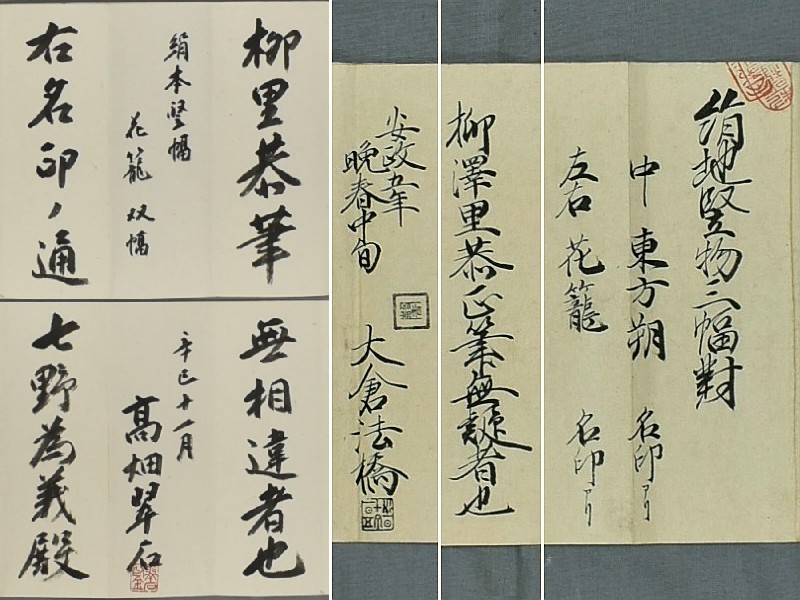 柳里恭筆
絹本竪幅
花籠双幅
右名印ノ通
無相違者也
辛巳十一月
高畑翠石
七野為義殿
絹地竪物三幅對
中東方朔 名印アリ
左右花籠 名印アリ
柳澤里恭正筆無疑者也
安政五年
晩春中旬
大倉法橋